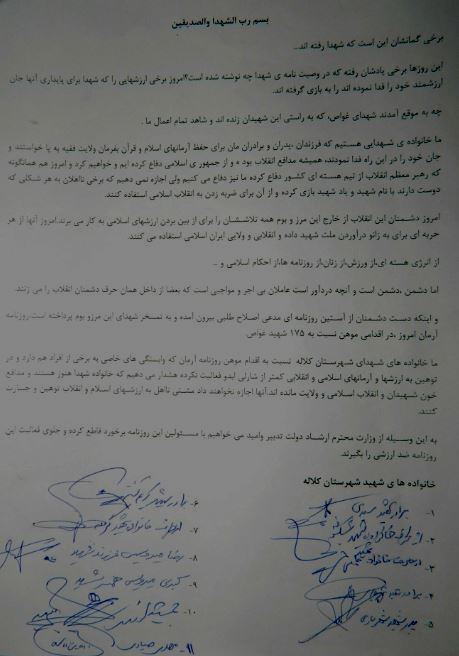 بسم رب الشهدا والصدیقین
برخی گمانشان این است که شهدا رفته اند..
این روزها برخی یادشان رفته که در وصیت نامه ی شهدا چه نوشته شده است؟امروز برخی ارزشهایی را که شهدا برای پایداری آنها جان
ارزشمند خود را فدا نموده اند را به بازی گرفته اند.
چه به موقع آمدند شهدای غواص، که به راستی این شهیدان زنده اند و شاهد تمام اعمال ما .
ما خانواده ی شهدایی هستیم که فرزندان ،پدران و برادران مان برای حفظ آرمانهای اسلام و قرآن بفرمان ولایت فقیه به پا خواستند و
جان خود را در این راه فدا نمودند، همیشه مدافع انقلاب بوده و از جمهوری اسلامی دفاع کرده ایم و خواهیم کرد و امروز هم همانگونه
که رهبر معظم انقلاب از تیم هسته ای کشور دفاع کرده ما نیز دفاع می کنیم ولی اجازه نمی دهیم که برخی نااهلان به هر شکلی که
دوست دارند با نام شهید و یاد شهید بازی کرده و از آن برای ضربه زدن به انقلاب اسلامی استفاده کنند.
امروز دشمنان این انقلاب از خارج این مرز و بوم همه تلاششان را برای از بین بردن ارزشهای اسلامی به کار می برند.امروز آنها از هر
حربه ای برای به زانو درآوردن ملت شهید داده و انقلابی و ولایی ایران اسلامی استفاده می کنند.
از انرژی هسته ای،از ورزش،از زنان،از روزنامه ها،از احکام اسلامی و ..
اما دشمن ،دشمن است و آنچه دردآور است عاملان بی اجر و مواجبی است که بعضا از داخل همان حرف دشمنان انقلاب را می زنند.
و اینکه دست دشمنان از آستین روزنامه ای مدعی اصلاح طلبی بیرون آمده و به تمسخر شهدای این مرزو بوم پرداخته است.روزنامه
آرمان امروز ،در اقدامی موهن نسبت به ۱۷۵ شهید غواص.
ما خانواده های شهدای شهرستان کلاله نسبت به اقدام موهن روزنامه آرمان که وابستگی های خاصی به برخی از افراد هم دارد و در
توهین به ارزشها و آرمانهای اسلامی و انقلابی کمتر از شارلی ابدو فعالیت نکرده هشدار می دهیم که خانواده شهدا هنوز هستند و مدافع
خون شهیدان و انقلاب اسلامی و ولایت مانده اند.آنها اجازه نخواهند داد مشتی نااهل به ارزشهای اسلام و انقلاب توهین و جسارت
کنند.
به این وسیله از وزارت محترم ارشاد دولت تدبیر وامید می خواهیم با مسئولین این روزنامه برخورد قاطع کرده و جلوی فعالیت این
روزنامه ضد ارزشی را بگیرند.
خانواده ها ی شهید شهرستان کلاله
۱-
۲-
۳-
۴-
۵-
۶-
۷-
۸-
۹-
۱۰-
۱۱-